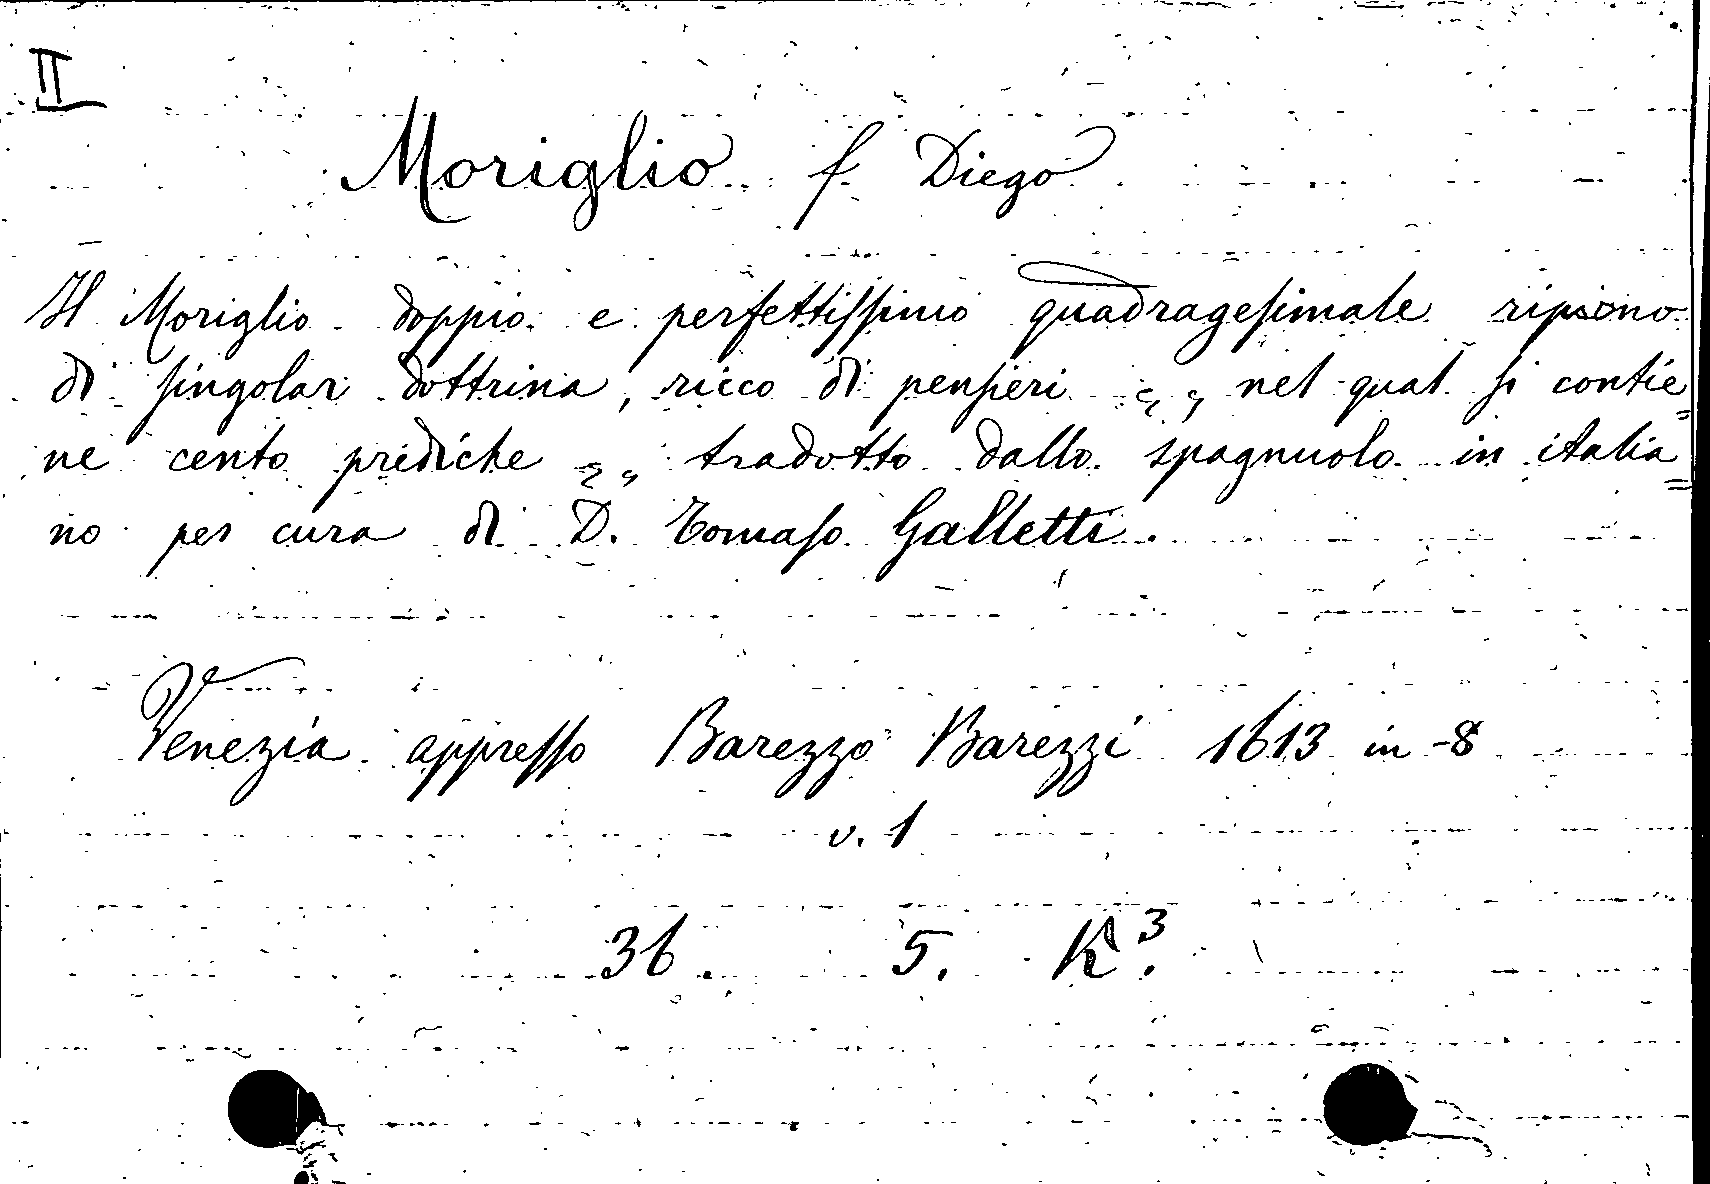 II
Moriglio f. Diego
Il Moriglio doppio e perfettissimo quadragesimale ripieno
di singolar dottrina, ricco di pensieri „ „ nel qual si contie=
ne cento prediche „ „ tradotto dallo spagnuolo in italia=
no per cura di D. Tomaso Galletti.
Venezia appresso Barezzo Barezzi 1613 in-8
v. 1
36. 5. K.³